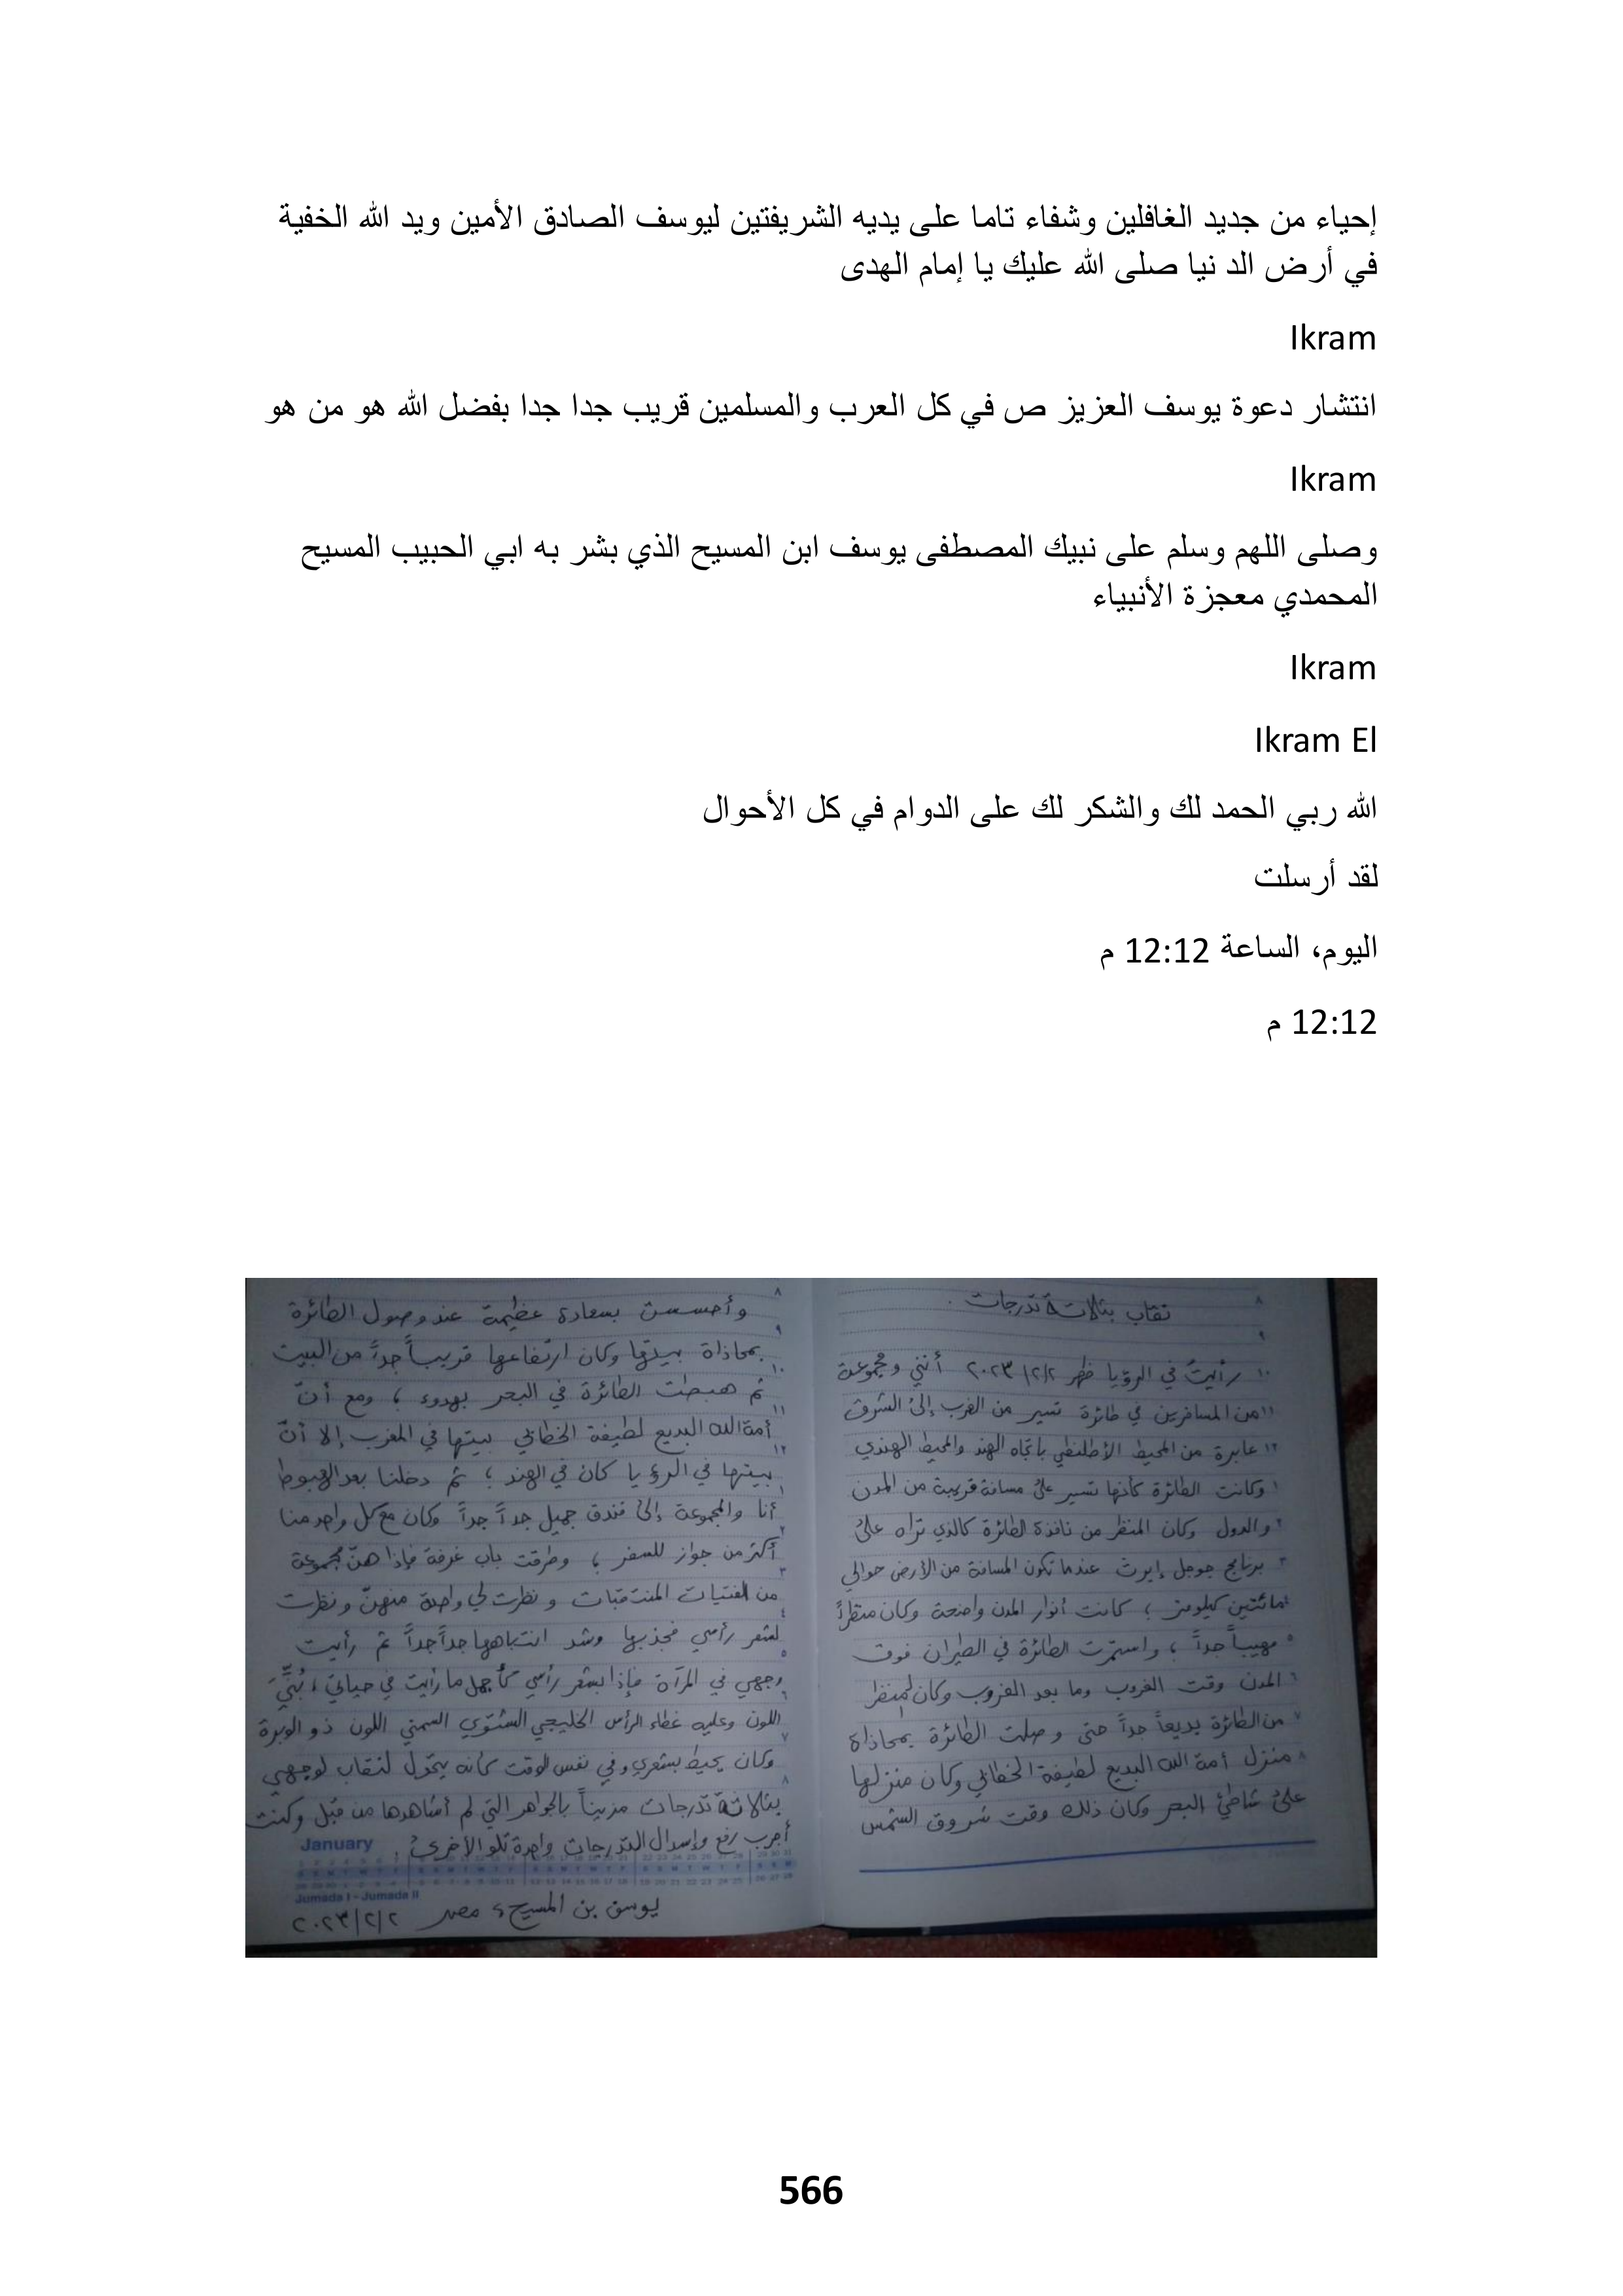 إحياء من جديد الغافلين وشفاء تاما على يديه الشريفتين ليوسف الصادق الأمين ويد الله الخفية
في أرض الد نيا صلى الله عليك يا إمام الهدى
Ikram
انتشار دعوة يوسف العزيز ص في كل العرب والمسلمين قريب جدا جدا بفضل الله هو من هو
Ikram
وصلى اللهم وسلم على نبيك المصطفى يوسف ابن المسيح الذي بشر به ابي الحبيب المسيح
المحمدي معجزة الأنبياء
Ikram
Ikram El
الله ربي الحمد لك والشكر لك على الدوام في كل الأحوال
لقد أرسلت
اليوم، الساعة 12:12 م
12:12 م
نقاب بثلاثة تدرجات .
رأيتُ في الرؤيا ظهر ٢٠٢٣/٢/٢ أنني ومجموعة
من المسافرين في طائرة تسير من الغرب إلى الشرق
عابرة من المحيط الأطلنطي باتجاه الهند والمحيط الهندي
وكانت الطائرة كأنها تسير على مسافة قريبة من المدن
والدول وكان المنظر من نافذة الطائرة كالذي تراه على
برنامج جوجل إيرث عندما تكون المسافة من الأرض حوالي
مائتين كيلومتر ؛ كانت أنوار المدن واضحة وكان منظراً
مهيباً جداً ؛ واستمرت الطائرة في الطيران فوق
المدن وقت الغروب وما بعد الغروب وكان المنظر
من الطائرة بديعاً جداً حتى وصلت الطائرة بمحاذاة
منزل أمة الله البديع لطيفة الخطابي وكان منزلها
على شاطئ البحر وكان ذلك وقت شروق الشمس
وأحسست بسعادة عظيمة عند وصول الطائرة
بمحاذاة بيتها وكان ارتفاعها قريباً جداً من البيت
ثم هبطت الطائرة في البحر بهدوء ؛ ومع أنّ
أمة الله البديع لطيفة الخطابي بيتها في المغرب إلا أنّ
بيتها في الرؤيا كان في الهند ؛ ثم دخلنا بعد الهبوط
أنا والمجموعة إلى فندق جميل جداً جداً وكان مع كل واحد منا
أكثر من جواز للسفر ؛ وطرقت باب غرفة فإذا هنّ مجموعة
من الفتيات المنتقبات و نظرت لي واحدة منهنّ و نظرت
لشعر رأسي فجذبها وشد انتباهها جداً جداً ثم رأيت
وجهي في المرآة فإذا بشعر رأسي كأجمل ما رأيت في حياتي ، بُنِّيّ
اللون وعليه غطاء الرأس الخليجي الشتوي السمني اللون ذو الوبرة
وكان يحيط بشعري وفي نفس الوقت كأنه يتحول لنقاب لوجهي
بثلاثة تدرجات مزيناً بالجواهر التي لم أشاهدها من قبل وكنت
أجرب رفع وإسدال التدرجات واحدة تلو الأخرى .
January
Jumada I - Jumada II
يوسف بن المسيح ، مصر ٢٠٢٣/٢/٢
566